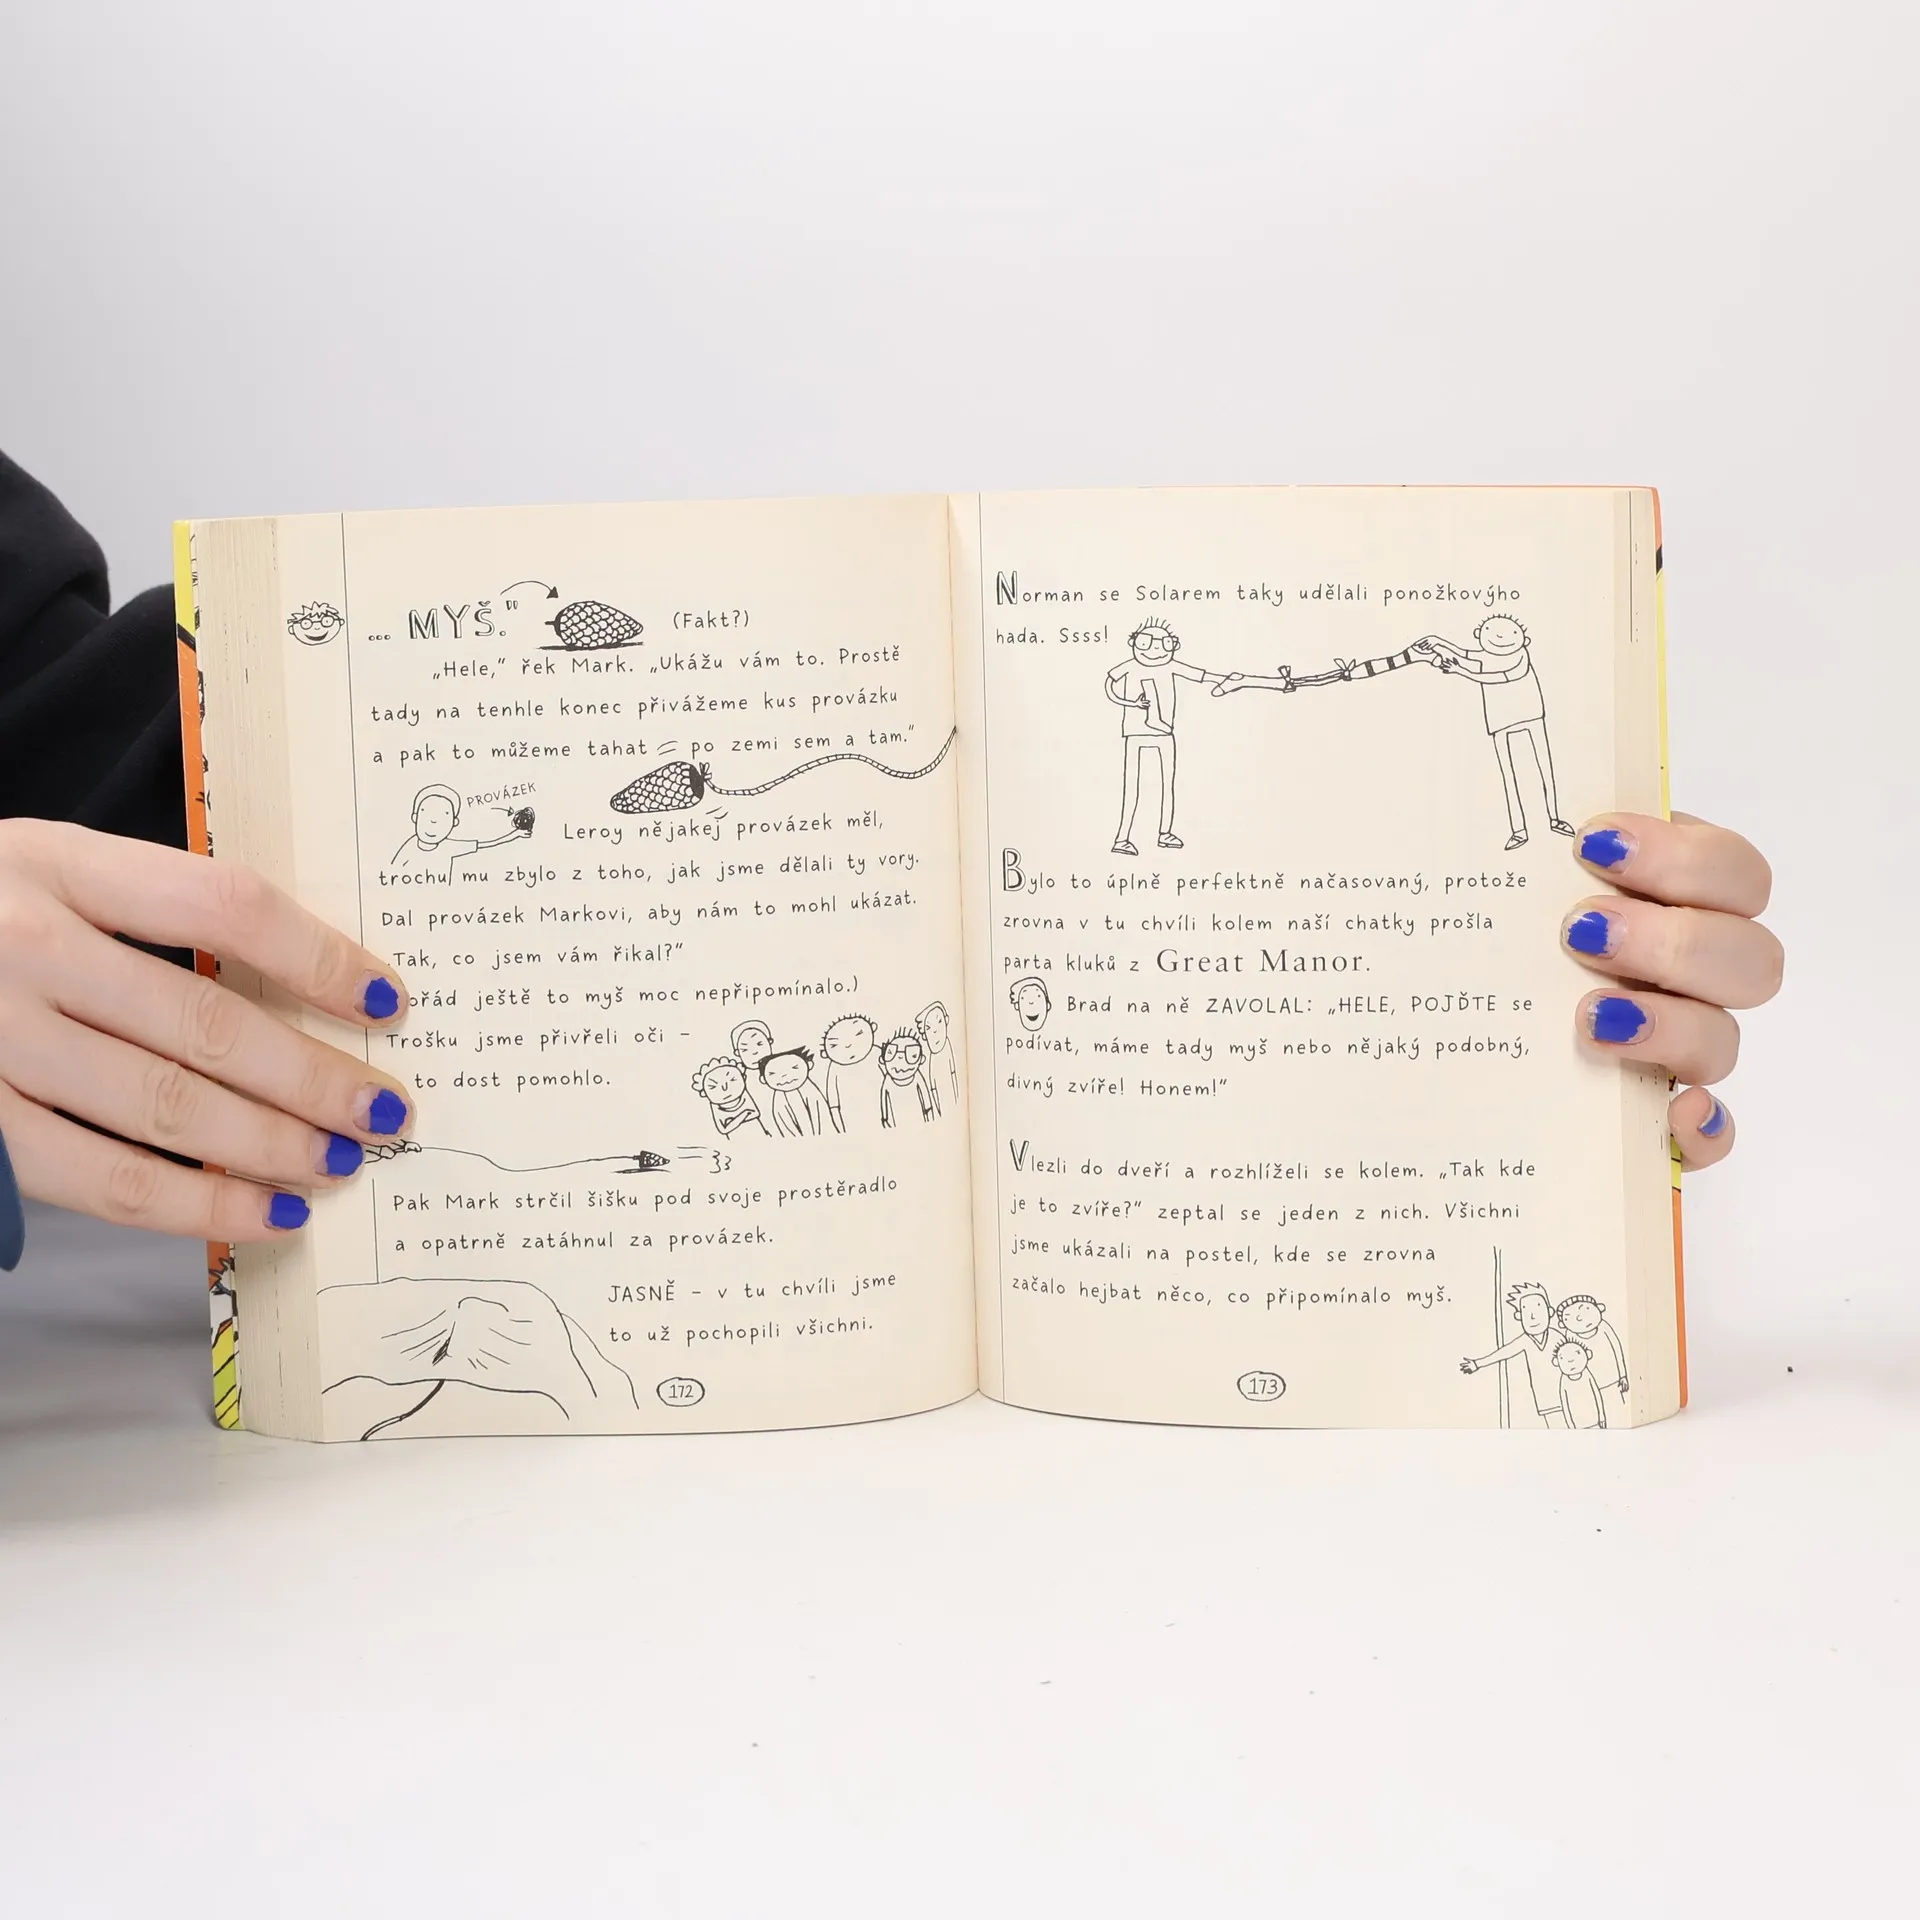 ... MYŠ.“ (Fakt?)
„Hele,“ řek Mark. „Ukážu vám to. Prostě
tady na tenhle konec přivážeme kus provázku
a pak to můžeme tahat po zemi sem a tam.“
PROVÁZEK
Leroy nějakej provázek měl,
trochu mu zbylo z toho, jak jsme dělali ty vory.
Dal provázek Markovi, aby nám to mohl ukázat.
„Tak, co jsem vám řikal?“
ještě to myš moc nepřipomínalo.)
Trošku jsme přivřeli oči –
to dost pomohlo.
Pak Mark strčil šišku pod svoje prostěradlo
a opatrně zatáhnul za provázek.
JASNĚ – v tu chvíli jsme
to už pochopili všichni.
172
Norman se Solarem taky udělali ponožkovýho
hada. Ssss!
Bylo to úplně perfektně načasovaný, protože
zrovna v tu chvíli kolem naší chatky prošla
parta kluků z Great Manor.
Brad na ně ZAVOLAL: „HELE, POJĎTE se
podívat, máme tady myš nebo nějaký podobný,
divný zvíře! Honem!“
Vlezli do dveří a rozhlíželi se kolem. „Tak kde
je to zvíře?“ zeptal se jeden z nich. Všichni
jsme ukázali na postel, kde se zrovna
začalo hejbat něco, co připomínalo myš.
173